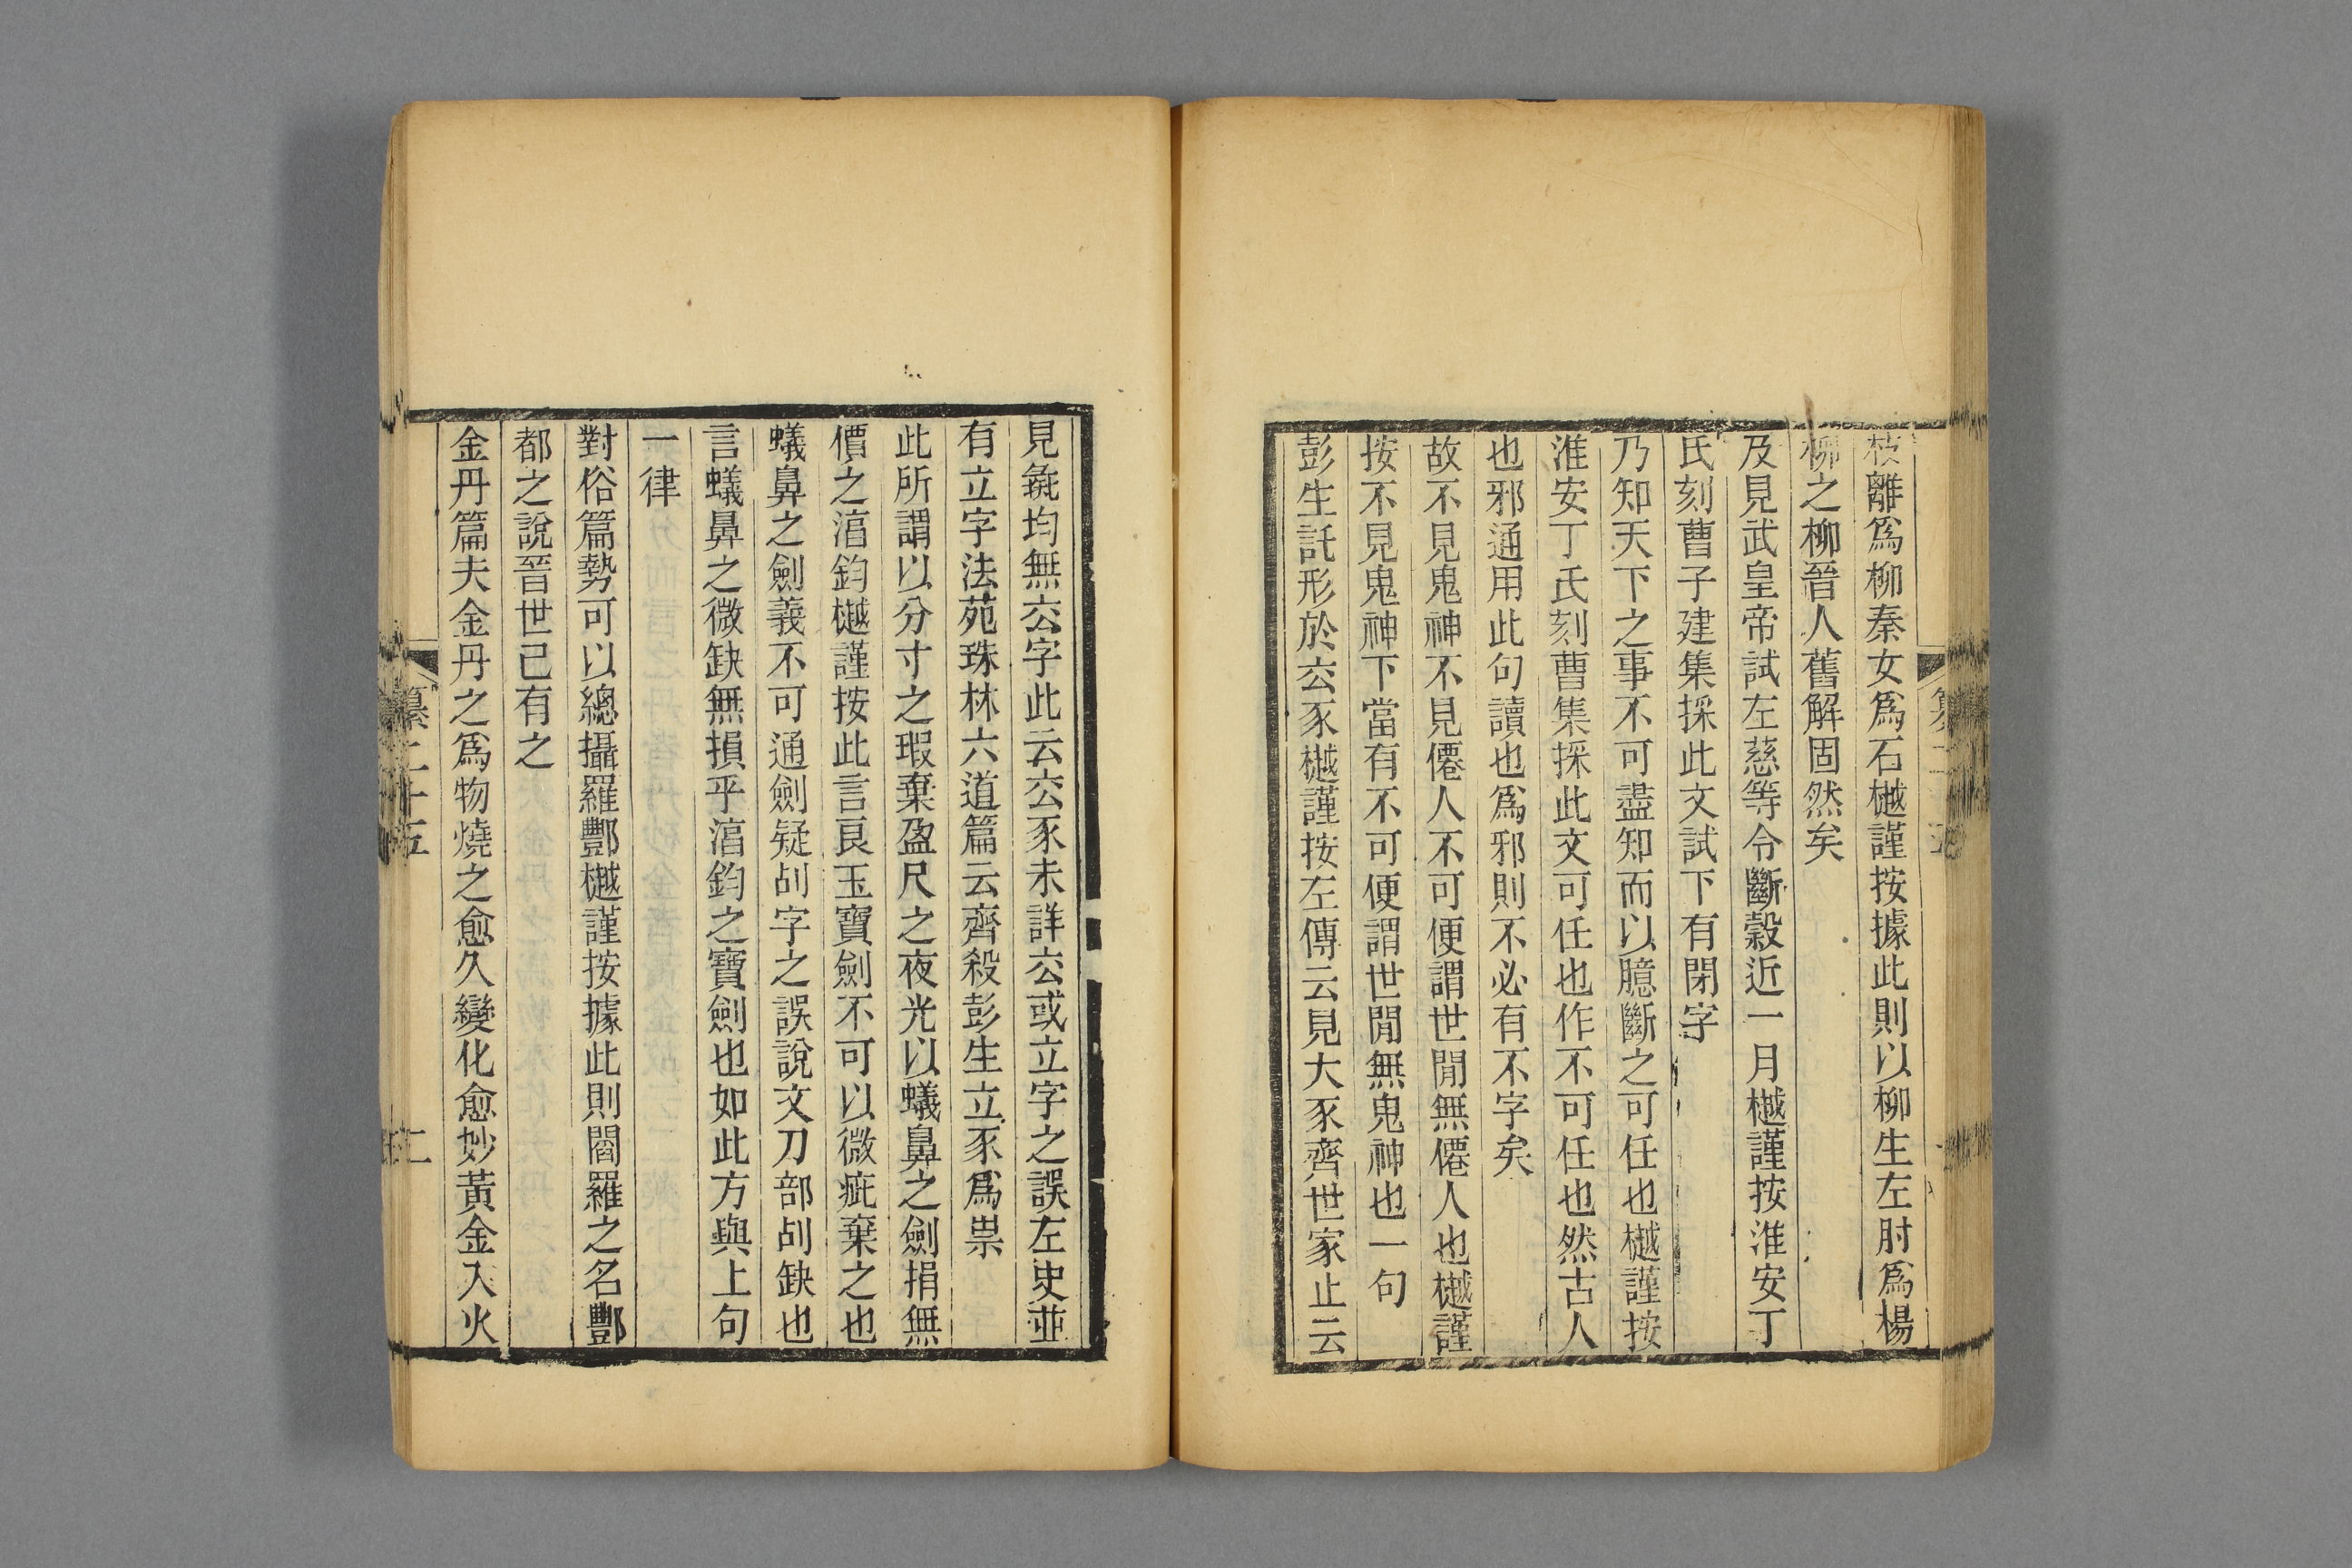 枝離爲柳秦女爲石樾謹按據此則以柳生左肘爲楊
柳之柳晉人舊解固然矣
及見武皇帝試左慈等令斷穀近一月樾謹按淮安丁
氏刻曹子建集採此文試下有閉字
乃知天下之事不可盡知而以臆斷之可任也樾謹按
淮安丁氏刻曹集採此文可任也作不可任也然古人
也邪通用此句讀也爲邪則不必有不字矣
故不見鬼神不見僊人不可便謂世閒無僊人也樾謹
按不見鬼神下當有不可便謂世閒無鬼神也一句
彭生託形於玄豕樾謹按左傳云見大豕齊世家止云
見彘均無玄字此云玄豕未詳玄或立字之誤左史並
有立字法苑珠林六道篇云齊殺彭生立豕爲祟
此所謂以分寸之瑕棄盈尺之夜光以蟻鼻之劍捐無
價之淯鈞樾謹按此言良玉寶劍不可以微疵棄之也
蟻鼻之劍義不可通劍疑㓠字之誤說文刀部㓠缺也
言蟻鼻之微缺無損乎淯鈞之寶劍也如此方與上句
一律
對俗篇勢可以總攝羅酆樾謹按據此則閻羅之名酆
都之說晉世已有之
金丹篇夫金丹之爲物燒之愈久變化愈妙黃金入火
纂二十五
二